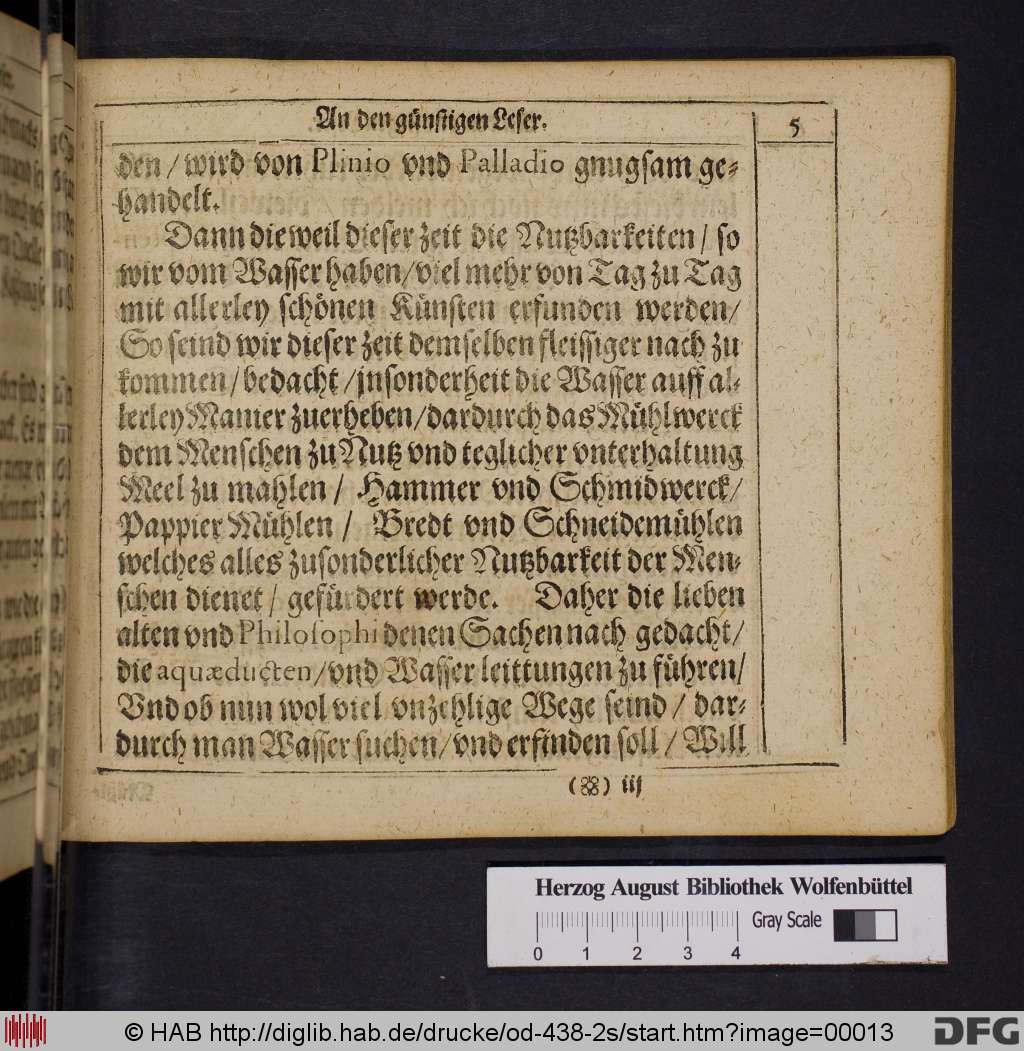 An den günstigen Leser.
5
den / wird von Plinio vnd Palladio gnugsam ge-
handelt.
Dann dieweil dieser zeit die Nutzbarkeiten / so
wir vom Wasser haben / viel mehr von Tag zu Tag
mit allerley schönen Künsten erfunden werden /
So seind wir dieser zeit demselben fleissiger nach zu
kommen / bedacht / jnsonderheit die Wasser auff al-
lerley Manier zuerheben / dardurch das Mühlwerck
dem Menschen zu Nutz vnd teglicher vnterhaltung
Meel zu mahlen / Hammer vnd Schmidwerck /
Pappier Mühlen / Bredt vnd Schneidemühlen
welches alles zusonderlicher Nutzbarkeit der Men-
schen dienet / gefürdert werde. Daher die lieben
alten vnd Philosophi denen Sachen nach gedacht /
die aquæducten / vnd Wasser leittungen zu führen /
Vnd ob nun wol viel vnzehlige Wege seind / dar-
durch man Wasser suchen / vnd erfinden soll / Will
(❀) iij
Herzog August Bibliothek Wolfenbüttel
Gray Scale
0 1 2 3 4
© HAB http://diglib.hab.de/drucke/od-438-2s/start.htm?image=00013
DFG